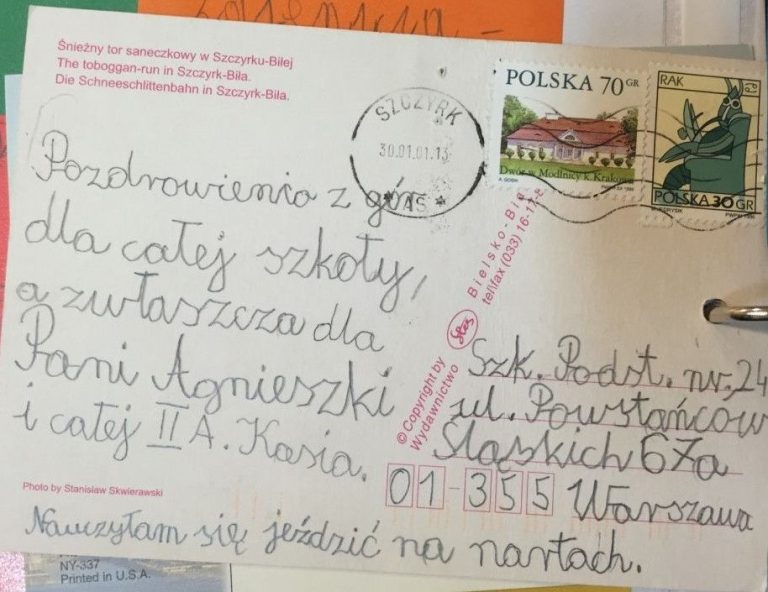 Śnieżny tor saneczkowy w Szczyrku-Biłej
The toboggan-run in Szczyrk-Biła.
Die Schneeschlittenbahn in Szczyrk-Biła.
SZCZYRK
30.01.01.13
POLSKA 70 GR
Dwór w Modlnicy k. Krakowa
RAK
POLSKA 30 GR
Pozdrowienia z gór
dla całej szkoły,
a zwłaszcza dla
Pani Agnieszki
i całej II A. Kasia.
© Copyright by
Wydawnictwo
Bielsko-Bia
tel/fax (033) 16-17-
Szk. Podst. nr. 24
ul. Powstańców
Śląskich 67a
01-355 Warszawa
Photo by Stanisław Skwierawski
Nauczyłam się jeździć na nartach.
NY-337
Printed in U.S.A.